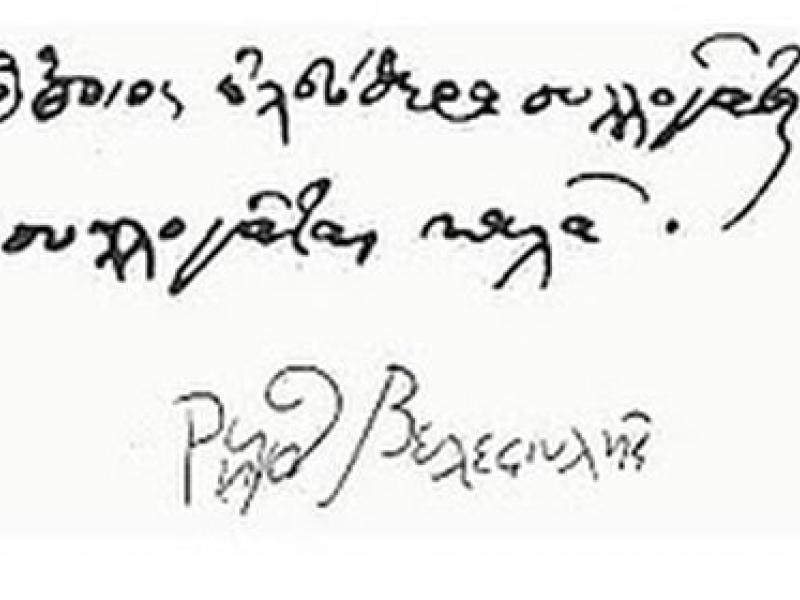 Ὅποιος ἐλεύθερα συλλογᾶται
συλλογᾶται καλᾶ .
Ρήγας Βελεϛινλῆς